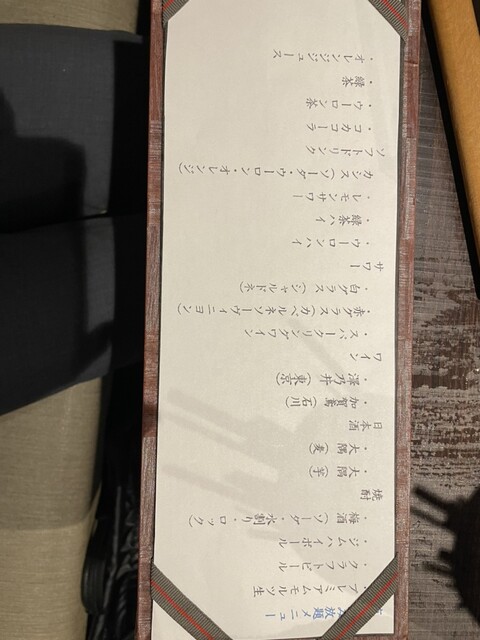 み放題メニュー
・プレミアムモルツ生
・クラフトビール
・ジムハイボール
・梅酒（ソーダ・水割り・ロック）
焼酎
・大隅（芋）
・大隅（麦）
日本酒
・加賀鳶（石川）
・澤乃井（東京）
ワイン
・スパークリングワイン
・赤グラス（カベルネソーヴィニヨン）
・白グラス（シャルドネ）
サワー
・ウーロンハイ
・緑茶ハイ
・レモンサワー
カシス（ソーダ・ウーロン・オレンジ）
ソフトドリンク
・コカコーラ
・ウーロン茶
・緑茶
・オレンジジュース